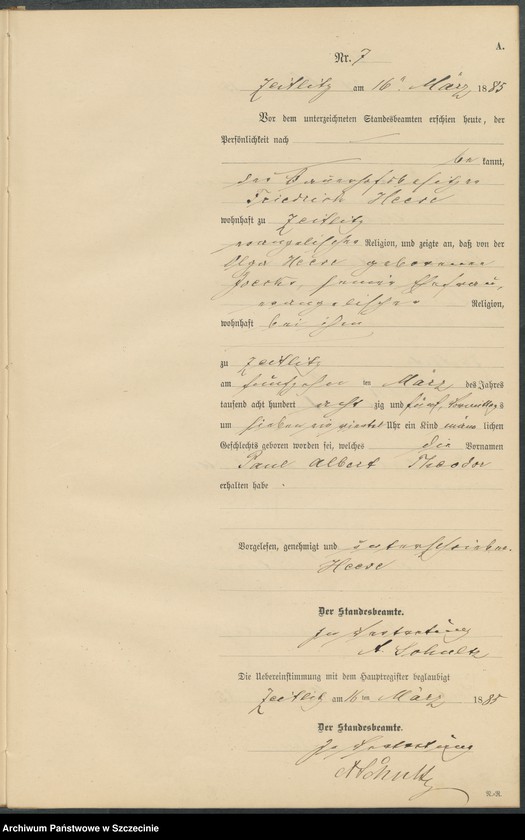 A.
Nr. 7
Zeitlitz am 16ten März 1885
Vor dem unterzeichneten Standesbeamten erschien heute, der
Persönlichkeit nach
be kannt,
der Bauerhofsbesitzer
Friedrich Heese
wohnhaft zu Zeitlitz
evangelischer Religion, und zeigte an, daß von der
Olga Heese geborenen
seiner Ehefrau,
evangelischer Religion,
wohnhaft bei ihm
zu Zeitlitz
am fünfzehn ten März des Jahres
tausend acht hundert acht zig und fünf, Vormittags
um sieben ein viertel Uhr ein Kind männ lichen
Geschlechts geboren worden sei, welches die Vornamen
Paul Albert Theodor
erhalten habe.
Vorgelesen, genehmigt und unterschrieben.
Heese
Der Standesbeamte.
In Vertretung
A. Schultz
Die Uebereinstimmung mit dem Hauptregister beglaubigt
Zeitlitz am 16ten März 1885
Der Standesbeamte.
In Vertretung
A Schultz
R.-R.
Archiwum Państwowe w Szczecinie